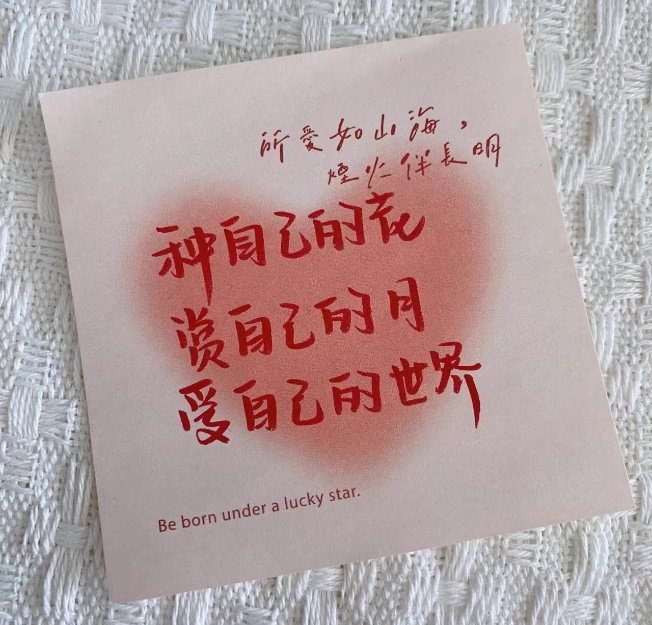 所愛如山海，
煙火伴長明
种自己的花
赏自己的月
爱自己的世界
Be born under a lucky star.